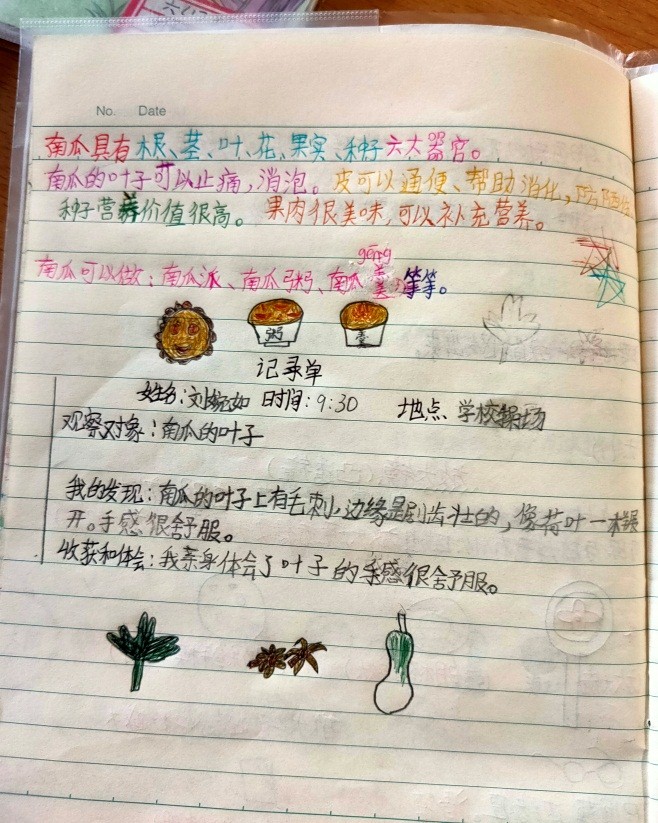 No. Date
南瓜具有根、茎、叶、花、果实、种子六大器官。
南瓜的叶子可以止痛,消泡。皮可以通便、帮助消化,
种子营养价值很高。 果肉很美味,可以补充营养。
gēng
南瓜可以做:南瓜派、南瓜粥、南瓜羹等等。
粥 羹
记录单
姓名:刘 如 时间:9:30 地点 学校操场
观察对象:南瓜的叶子
我的发现:南瓜的叶子上有毛刺,边缘是剧齿壮的,像荷叶一样展
开。手感很舒服。
收获和体会:我亲身体会了叶子的手感很舒服。